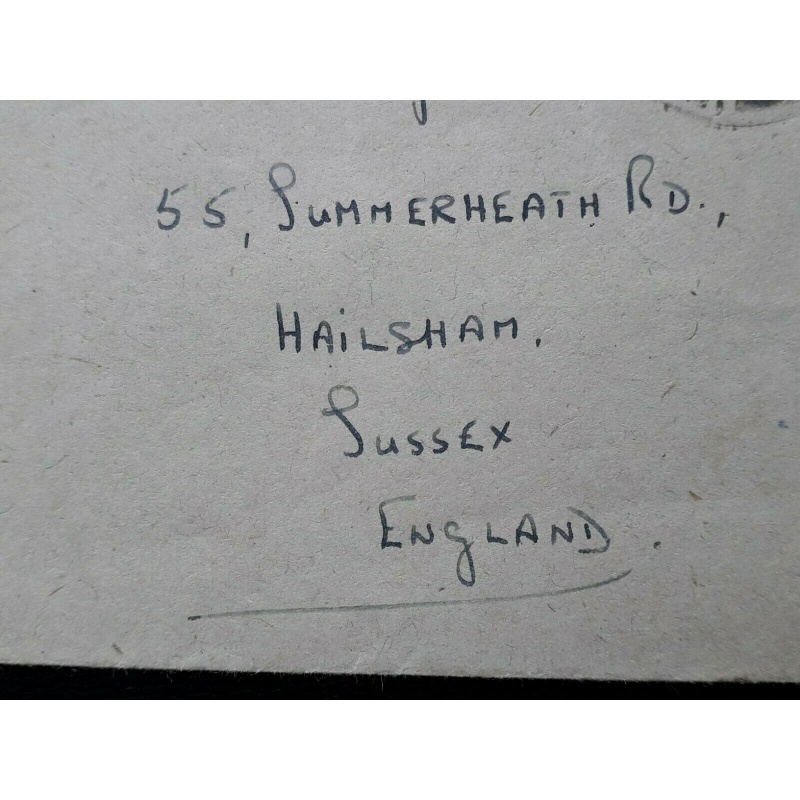 55, SUMMERHEATH RD.,
HAILSHAM.
SUSSEX
ENGLAND.